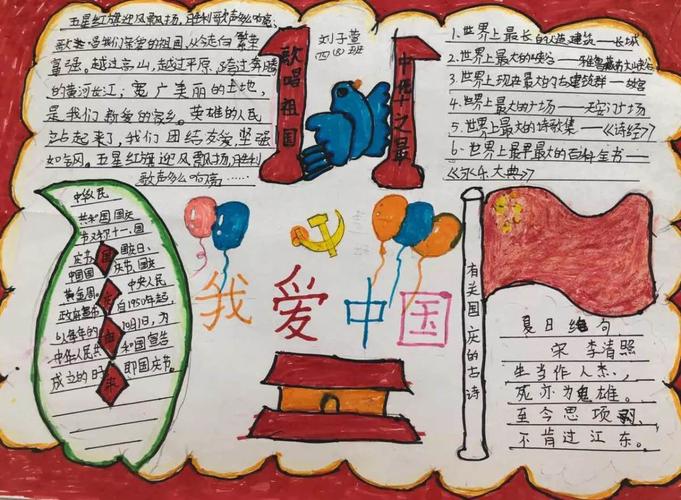 五星红旗迎风飘扬,胜利歌声多么响亮;
歌唱我们亲爱的祖国,从今走向繁荣
富强。越过高山,越过平原,跨过奔腾
的黄河长江;宽广美丽的土地,
是我们亲爱的家乡。英雄的人民
站起来了,我们团结友爱,坚强
如钢。五星红旗迎风飘扬,胜利
歌声多么响亮……
歌唱祖国
刘子萱
四(3)班
中华之最
1.世界上最长的人造建筑——长城
2.世界上最大的峡谷——雅鲁藏布大峡谷
3.世界上现存最大的古建筑群——故宫
4.世界上最大的广场——天安门广场
5.世界上最早的诗歌集——《诗经》
6.世界上最早最大的百科全书——
《永乐大典》
中华人民
共和国国庆
节又称十一、国
庆节、国庆日、
中国国庆节、国庆
黄金周。中央人民
政府宣布自1950年起,
以每年的10月1日,为
中华人民共和国宣告
成立的日即国庆节。
国庆由来
我爱中国
有关国庆的古诗
夏日绝句
宋 李清照
生当作人杰,
死亦为鬼雄。
至今思项羽,
不肯过江东。